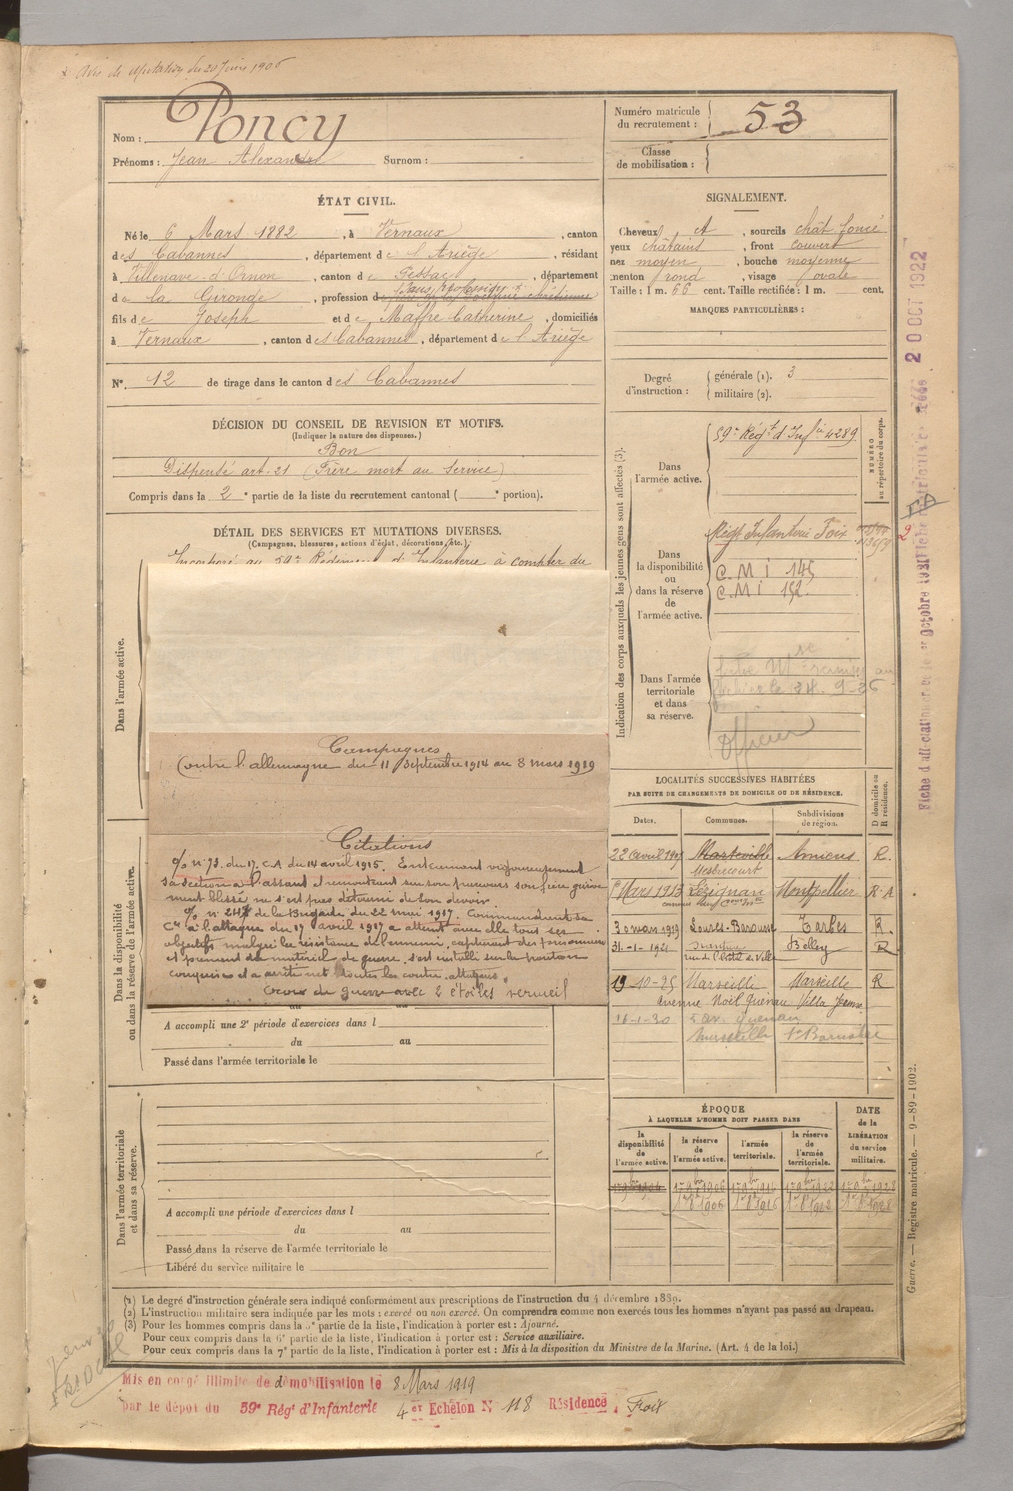 Avis de mutation du 20 Juin 1906
Nom : Poncy
Prénoms : Jean Alexandre Surnom :
Numéro matricule du recrutement : 53
Classe de mobilisation :
ÉTAT CIVIL.
Né le 6 Mars 1882, à Vernaux, canton
des Cabannes, département de l'Ariège, résidant
à Villenave-d'Ornon, canton de Pessac, département
Sans profession
de la Gironde, profession de frère de la doctrine chrétienne
fils de Joseph et de Maffre Catherine, domiciliés
à Vernaux, canton des Cabannes, département de l'Ariège
N° 12 de tirage dans le canton des Cabannes
SIGNALEMENT.
Cheveux ct, sourcils chât foncé
yeux châtains, front couvert
nez moyen, bouche moyenne
menton rond, visage ovale
Taille : 1 m. 66 cent. Taille rectifiée : 1 m. cent.
MARQUES PARTICULIÈRES :
Degré d'instruction : générale (1). 3
militaire (2).
DÉCISION DU CONSEIL DE REVISION ET MOTIFS.
(Indiquer la nature des dispenses.)
Bon
Dispensé art. 21 (Frère mort au service)
Compris dans la 2e partie de la liste du recrutement cantonal ( e portion).
DÉTAIL DES SERVICES ET MUTATIONS DIVERSES.
(Campagnes, blessures, actions d'éclat, décorations, etc.)
Incorporé au 59e Régiment d'Infanterie à compter du
Dans l'armée active.
Campagnes
Contre l'allemagne du 11 Septembre 1914 au 8 mars 1919
Citations
o/o n° 73. du 17. C.A du 14 avril 1915. Entrainant vigoureusement
sa section à l'assaut et rencontrant sur son parcours son frère griève
ment blessé ne s'est pas détourné de son devoir.
de la Brigade du 22 mai 1917. Commandant sa
Cie à l'attaque du 17 avril 1917 a atteint avec elle tous ses
objectifs malgré la résistance de l'ennemi, capturant des prisonniers
et prenant du matériel de guerre, s'est installé sur la position
conquise et a arrêté net toutes les contre attaques.
Croix de guerre avec 2 étoiles vermeil
Dans la disponibilité ou dans la réserve de l'armée active.
A accompli une 2e période d'exercices dans l
du au
Passé dans l'armée territoriale le
Dans l'armée territoriale et dans sa réserve.
A accompli une période d'exercices dans l
du au
Passé dans la réserve de l'armée territoriale le
Libéré du service militaire le
Indication des corps auxquels les jeunes gens sont affectés (3).
NUMÉRO au répertoire du corps.
Dans l'armée active.
59e Régt d'Infie 4289
Dans la disponibilité ou dans la réserve de l'armée active.
Régt Infanterie Foix
C.M.I 145
C.M.I 152
Dans l'armée territoriale et dans sa réserve.
Officier
LOCALITÉS SUCCESSIVES HABITÉES
PAR SUITE DE CHANGEMENTS DE DOMICILE OU DE RÉSIDENCE.
Dates. Communes. Subdivisions de région. D domicile ou R résidence.
22 Avril Amiens R.
1er Mars 1913 Lézignan Montpellier R.A
3 mars 1919 Loures-Barousse Tarbes R.
31-1-1921 Belley R
rue de l'Hôtel de Ville
19-10-25 Marseille Marseille R
Avenue Noël Guenau Villa Jeanne
16-1-30
Marseille St Barnabé
ÉPOQUE
À LAQUELLE L'HOMME DOIT PASSER DANS
la disponibilité de l'armée active. la réserve de l'armée active. l'armée territoriale. la réserve de l'armée territoriale. DATE de la LIBÉRATION du service militaire.
Guerre. — Registre matricule. — 9-89-1902.
(1) Le degré d'instruction générale sera indiqué conformément aux prescriptions de l'instruction du 4 décembre 1889.
(2) L'instruction militaire sera indiquée par les mots : exercé ou non exercé. On comprendra comme non exercés tous les hommes n'ayant pas passé au drapeau.
(3) Pour les hommes compris dans la 5e partie de la liste, l'indication à porter est : Ajourné.
Pour ceux compris dans la 6e partie de la liste, l'indication à porter est : Service auxiliaire.
Pour ceux compris dans la 7e partie de la liste, l'indication à porter est : Mis à la disposition du Ministre de la Marine. (Art. 4 de la loi.)
Mis en congé illimité de démobilisation le 8 Mars 1919
par le dépôt du 59e Régt d'Infanterie 4er Echelon N° 118 Résidence, Foix
20 OCT 1922